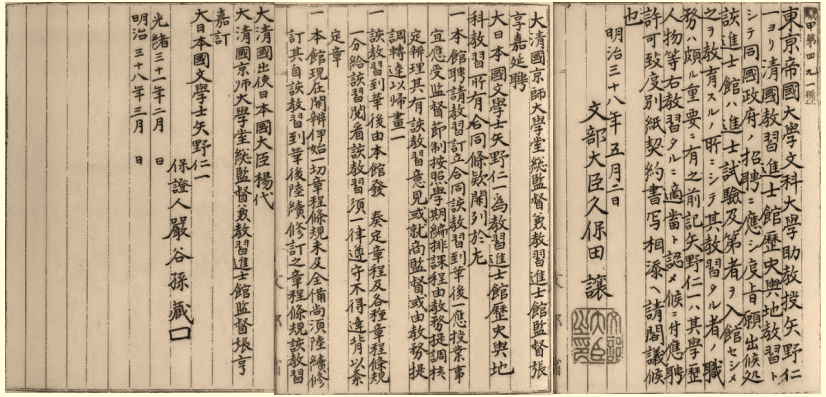 東京帝國大學文科大學助教授矢野仁
一ヨリ清國教習進士館歴史輿地教習ト
シテ同國政府ノ招聘ニ應シ度旨願出候処
該進士館ハ進士試驗及第者ヲ入館セシメ
之ヲ教育スルノ所ニシテ其教習タル者ノ職
務ハ頗ル重要ニ有之前記矢野仁一ハ其學歴
人物等右教習タルニ適當ト認メ候ニ付應聘
許可致度別紙契約書写相添ヘ請閣議候
也
明治三十八年五月二日
文部大臣久保田讓
大清國京師大學堂総監督兼教習進士館監督張
亨嘉延聘
大日本國文學士矢野仁一為教習進士館歴史輿地
科教習所有合同條款開列於左
一本館聘請教習訂立合同該教習到華後一應授業事
宜應受監督節制按照學期編排課程由教務提調核
定辦理其有該教習意見或就商監督或由教務提
調轉達以歸畫一
一該教習到華後由本館發 奏定章程及各種章程條規
一分給該教習閲看該教習須一律遵守不得違背以紊
定章
一本館現在開辦伊始一切章程條規未及全備尚須陸續修
訂其自該教習到華後陸續修訂之章程條規該教習
大清國出使日本國大臣楊代
大清國京師大學堂総監督兼教習進士館監督張亨
嘉訂
大日本國文學士矢野仁一
保證人嚴谷孫藏
光緒三十一年二月 日
明治三十八年三月 日